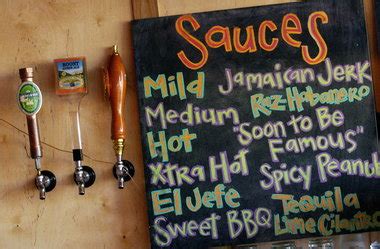 Sauces
Mild
Medium
Hot
Xtra Hot
El Jefe
Sweet BBQ
Jamaican Jerk
Raz-Habanero
"Soon to Be
Famous"
Spicy Peanut
Tequila
Lime Cilantro